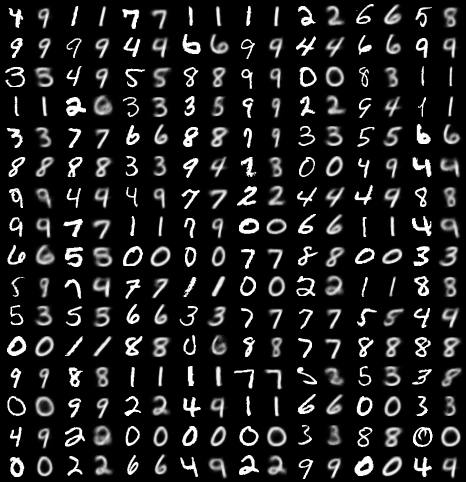 4 9 1 1 7 7 1 1 1 1 2 2 6 6 5 8
9 9 9 9 4 4 6 6 9 9 4 4 6 6 9 9
3 5 4 9 5 5 8 8 9 9 0 0 8 3 1 1
1 1 2 0 3 3 3 5 9 9 2 2 9 4 1 1
3 3 7 7 6 6 8 8 7 9 3 3 5 5 6 6
8 8 8 8 3 3 9 4 7 3 0 0 4 9 4 4
9 9 4 9 4 9 7 7 2 2 4 4 4 9 8 8
9 9 7 7 1 1 7 9 0 0 6 6 1 1 4 9
6 6 5 5 0 0 0 0 7 7 8 8 0 0 3 3
5 9 7 4 7 7 1 1 0 0 2 2 1 1 8 8
5 3 5 5 6 6 3 3 7 7 7 7 5 5 4 4
0 0 1 1 8 8 0 6 8 8 7 7 8 8 8 8
9 9 8 8 1 1 1 1 7 7 5 2 5 3 3 8
0 0 9 9 2 2 4 9 1 1 6 6 0 0 3 3
4 9 2 0 0 0 0 0 0 0 3 3 8 8 0 0
0 0 2 2 6 6 4 9 2 2 9 9 0 0 4 9